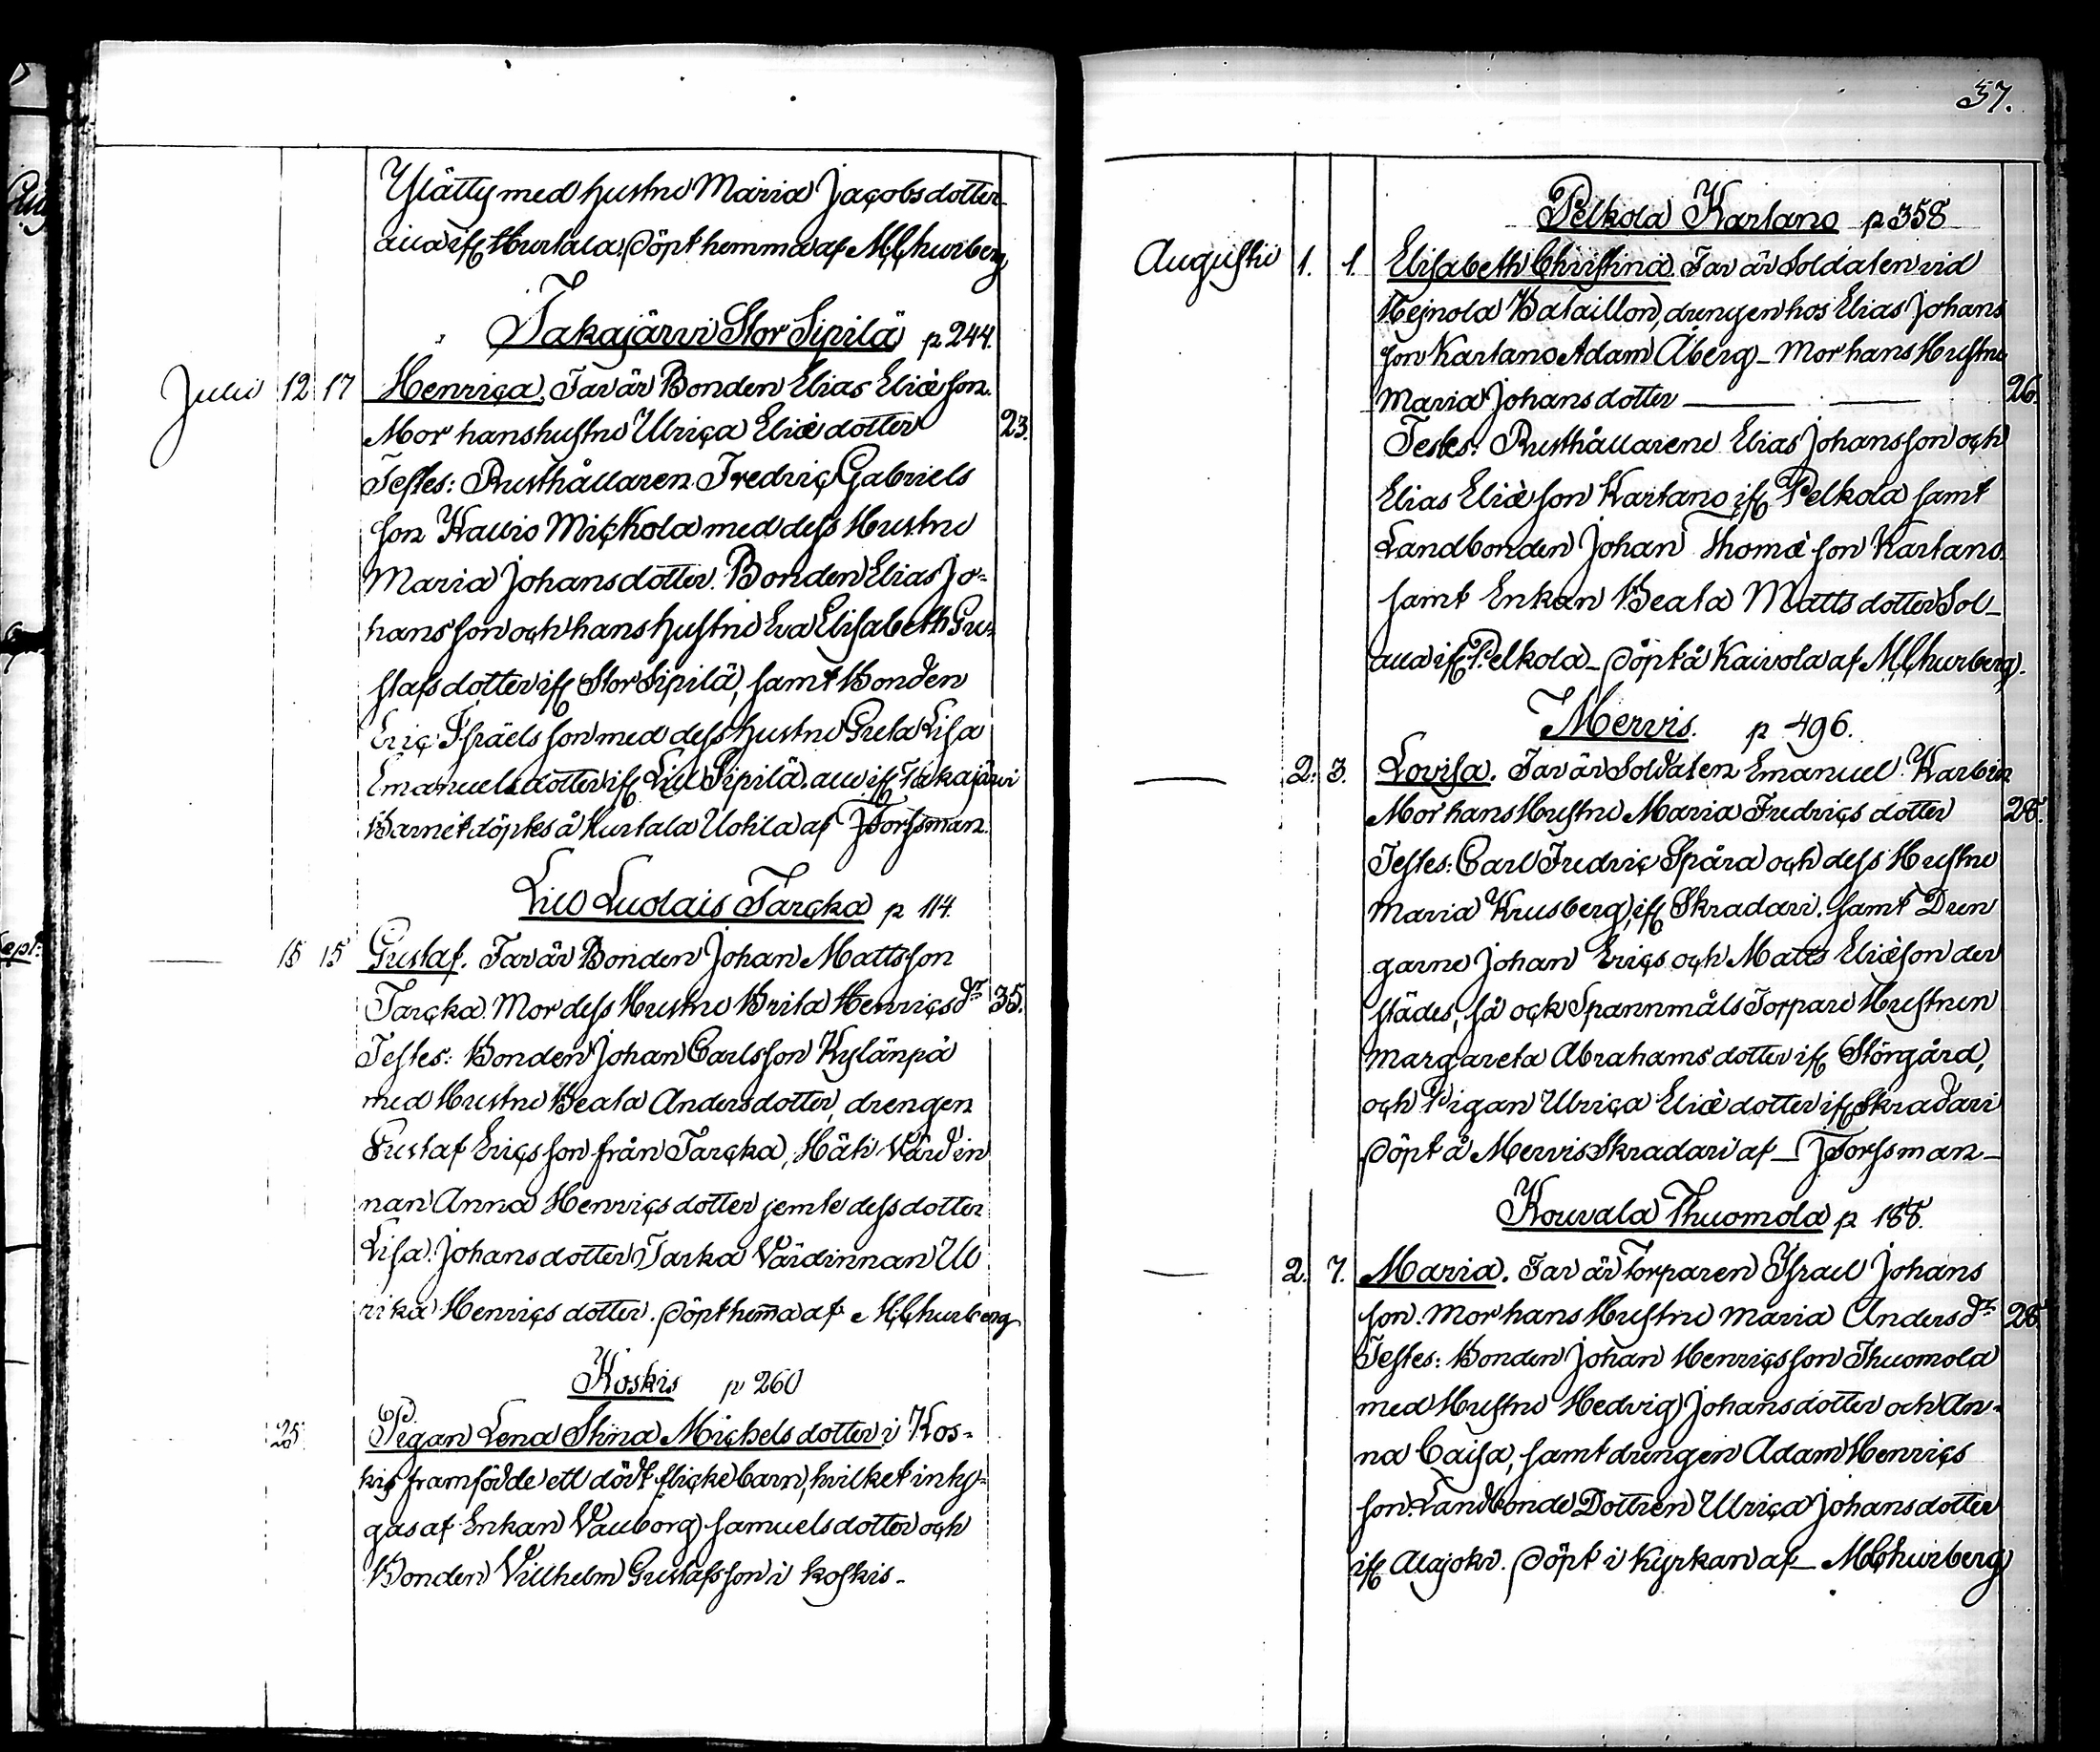 Ylätty med hustru Maria Jacobsdotter
alla ifr Hurtala. Döpt hemma af M. Churberg
Takajärvi Stor Sipilä p 244.
Julii 12 17 Henrica. Far är Bonden Elias Eliæson.
Mor hans hustru Ulrica Eliædotter 23.
Testes: Rusthållaren Fredric Gabriels
son Kallio Mickola med dess Hustru
Maria Johansdotter. Bonden Elias Jo-
hansson och hans hustru Eva Elisabeth Gu-
stafsdotter ifr Stor Sipilä, samt Bonden
Eric Israelsson med dess hustru Greta Lisa
Emanuelsdotter ifr Lill Sipilä. all ifr Takajärvi
Barnet döptes å Hurtala Uotila af J Forssman.
Lill Ludais Tarcka p 114.
— 15 15 Gustaf. Far är Bonden Johan Mattsson
Tarcka. Mor dess Hustru Brita Henricsdr 35.
Testes: Bonden Johan Carlsson Kylänpä
med Hustru Beata Andersdotter, drengen
Gustaf Ericsson från Tarcka, Häti Värdin
nan Anna Henricsdotter jemte dess dotter
Lisa Johansdotter Tarka Värdinnan Ul
rika Henricsdotter. Döpt hema af M. Churberg
Koskis p 260
25. Pigan Lena Stina Michelsdotter i Kos-
kis framfödde ett dödt flickebarn, hvilket inty-
gas af Enkan Vallborg Samuelsdotter och
Bonden Villhelm Gustafsson i Koskis.
57.
Pelkola Kartano p 358
Augusti 1. 1. Elisabeth Christina. Far är Soldaten vid
Hejnola Bataillon, drengen hos Elias Johans
son Kartano Adam Åberg — Mor hans Hustru
Maria Johansdotter — — 26.
Testes: Rusthållarene Elias Johansson och
Elias Eliæson Kartano ifr Pelkola samt
Landbonden Johan Thomæson Kartano
samt Enkan Beata Mattsdotter Sol-
alla ifr Pelkola — Döpt å Kaivola af M. Churberg.
Mervis. p 496.
— 2. 3. Lovisa. Far är Soldaten Emanuel Karbin
Mor hans Hustru Maria Fredricsdotter 28.
Testes: Carl Fredric Spåra och dess Hustru
Maria Krusberg, ifr Skradari. samt Dren
garne Johan Erics och Matts Eliæson der
städes, så ock Spannmåls Torpare Hustrun
Margareta Abrahamsdotter ifr Störgård,
och Pigan Ulrica Eliædotter ifr Skradari
Döpt å Mervis Skradari af — J Forssman —
Kouvala Thuomola p 188.
— 2. 7. Maria. Far är Torparen Israel Johans
son. Mor hans Hustru Maria Andersdr 28.
Testes: Bonden Johan Henricsson Thuomola
med Hustru Hedvig Johansdotter och An-
na Caisa, samt drengen Adam Henrics
son. Landbonde Dottren Ulrica Johansdotter
ifr Alajoki. Döpt i Kyrkan af — M Churberg